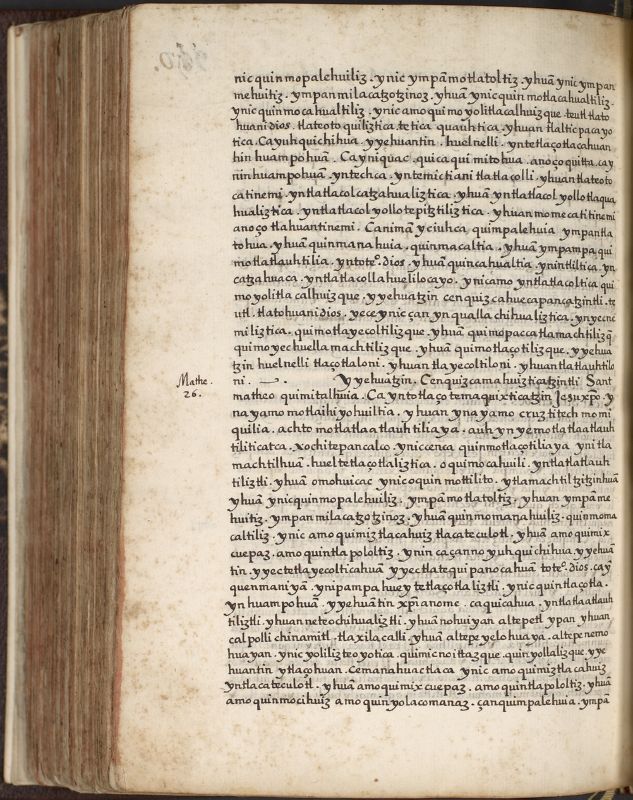 nic quinmopalehuiliz. ynic ympā motlatoltiz. yhuā ynic ympan
mehuitiz. ympan milacatzotzinoz. yhuā ynic quinmotlacahualtiliz.
ynic quinmocahualtiliz. ynic amo quimoyolitlacalhuizque. teutl tlato
huani dios. tlateotoquiliztica. tetica quauhtica. yhuan tlalticpacayo
tica. Ca yuhqui chihua. yyehuantin. huelnelli. yntetlaçotlacahuan
hin huampohuā. Ca yniquac. quicaqui mitohua. anoço quitta. cay
nin huampohuā. yntechca. yntemictiani tlatlaçolli. yhuan tlateoto
catinemi. yntlatlacolcatzahualiztica. yhuā yntlatlacol yollotlaqua
hualiztica. yntlatlacol yollotepitztiliztica. yhuan momecatitinemi
anoço tlahuantinemi. Canimā yciuhca. quimpalehuia. ympantla
tohua. yhuā quinmanahuia. quinmacaltia. yhuā ympampa. qui
motlatlauhtilia. yntoteº. dios. yhuā quincahualtia. ynintliltica. yn
catzahuaca. yntlatlacollahuelilocayo. ynicamo yntlatlacoltica qui
moyolitlacalhuizque. yyehuatzin cenquizcahuecapancatzintli. te
utl. tlatohuani dios. yece ynicçan ynqualla chihualiztica. ynyecne
miliztica. quimotlayecoltilizque. yhuā quimopaccatlamachtilizq̄
quimoyechuellamachtilizque. yhuā quimotlaçotilizque. yyehua
tzin huelnelli tlaçotlaloni. yhuan tlayecoltiloni. yhuan tlatlauhtilo
ni. Yyehuatzin. Cenquizcamahuizticatzintli Sant
Mathe.
26.
matheo quimitalhuia. Ca yntotlaçotemaquixticatzin Jesu xpō. y
nayamo motlaihiyohuiltia. yhuan ynayamo cruztitech momi
quilia. achto motlatlatlauhtiliaya. auh yn yemotlatlatlauh
tiliticatca. xochitepancalco. ynic cenca quinmotlaçotiliaya ynitla
machtilhuā. huel tetlaçotlaliztica. oquimocahuili. yntlatlatlauh
tiliztli. yhuā omohuicac ynic oquinmottilito. ytlamachtiltzitzinhuā
yhuā ynic quinmopalehuiliz. ympā motlatoltiz. yhuan ympā me
huitiz. ympan milacatzotzinoz. yhuā quinmomanahuiliz. quinmoma
caltiliz. ynic amo quimiztlacahuiz tlacateculotl. yhuā amo quimix
cuepaz. amo quintlapololtiz. ynin caçanno yuhquichihuia. yyehuā
tin. yyectetlayecolticahuā yyectlatequipanocahuā toteº. dios. cay
quenmaniyā. ynipampa huey tetlaçotlaliztli. ynic quintlaçotla.
yn huampohuā. yyehuātin xp̄ianome. ca quicahua. yntlatlatlauh
tiliztli. yhuan neteochihualiztli. yhuā nohuiyan altepetl ypan yhuan
calpolli chinamitl. tlaxilacalli. yhuā altepeyelohuaya. altepenemo
huayan. ynic yoliliz teoyotica. quimicnoittazque. quinyollalizque. yye
huantin ytlaçohuan. Cemanahuactlaca ynic amo quimiztlacahuiz
yntlacateculotl. yhuā amo quimixcuepaz. amo quintlapololtiz. yhuā
amo quinmocihuiz amo quinyolacomanaz. çan quimpalehuia. ympā